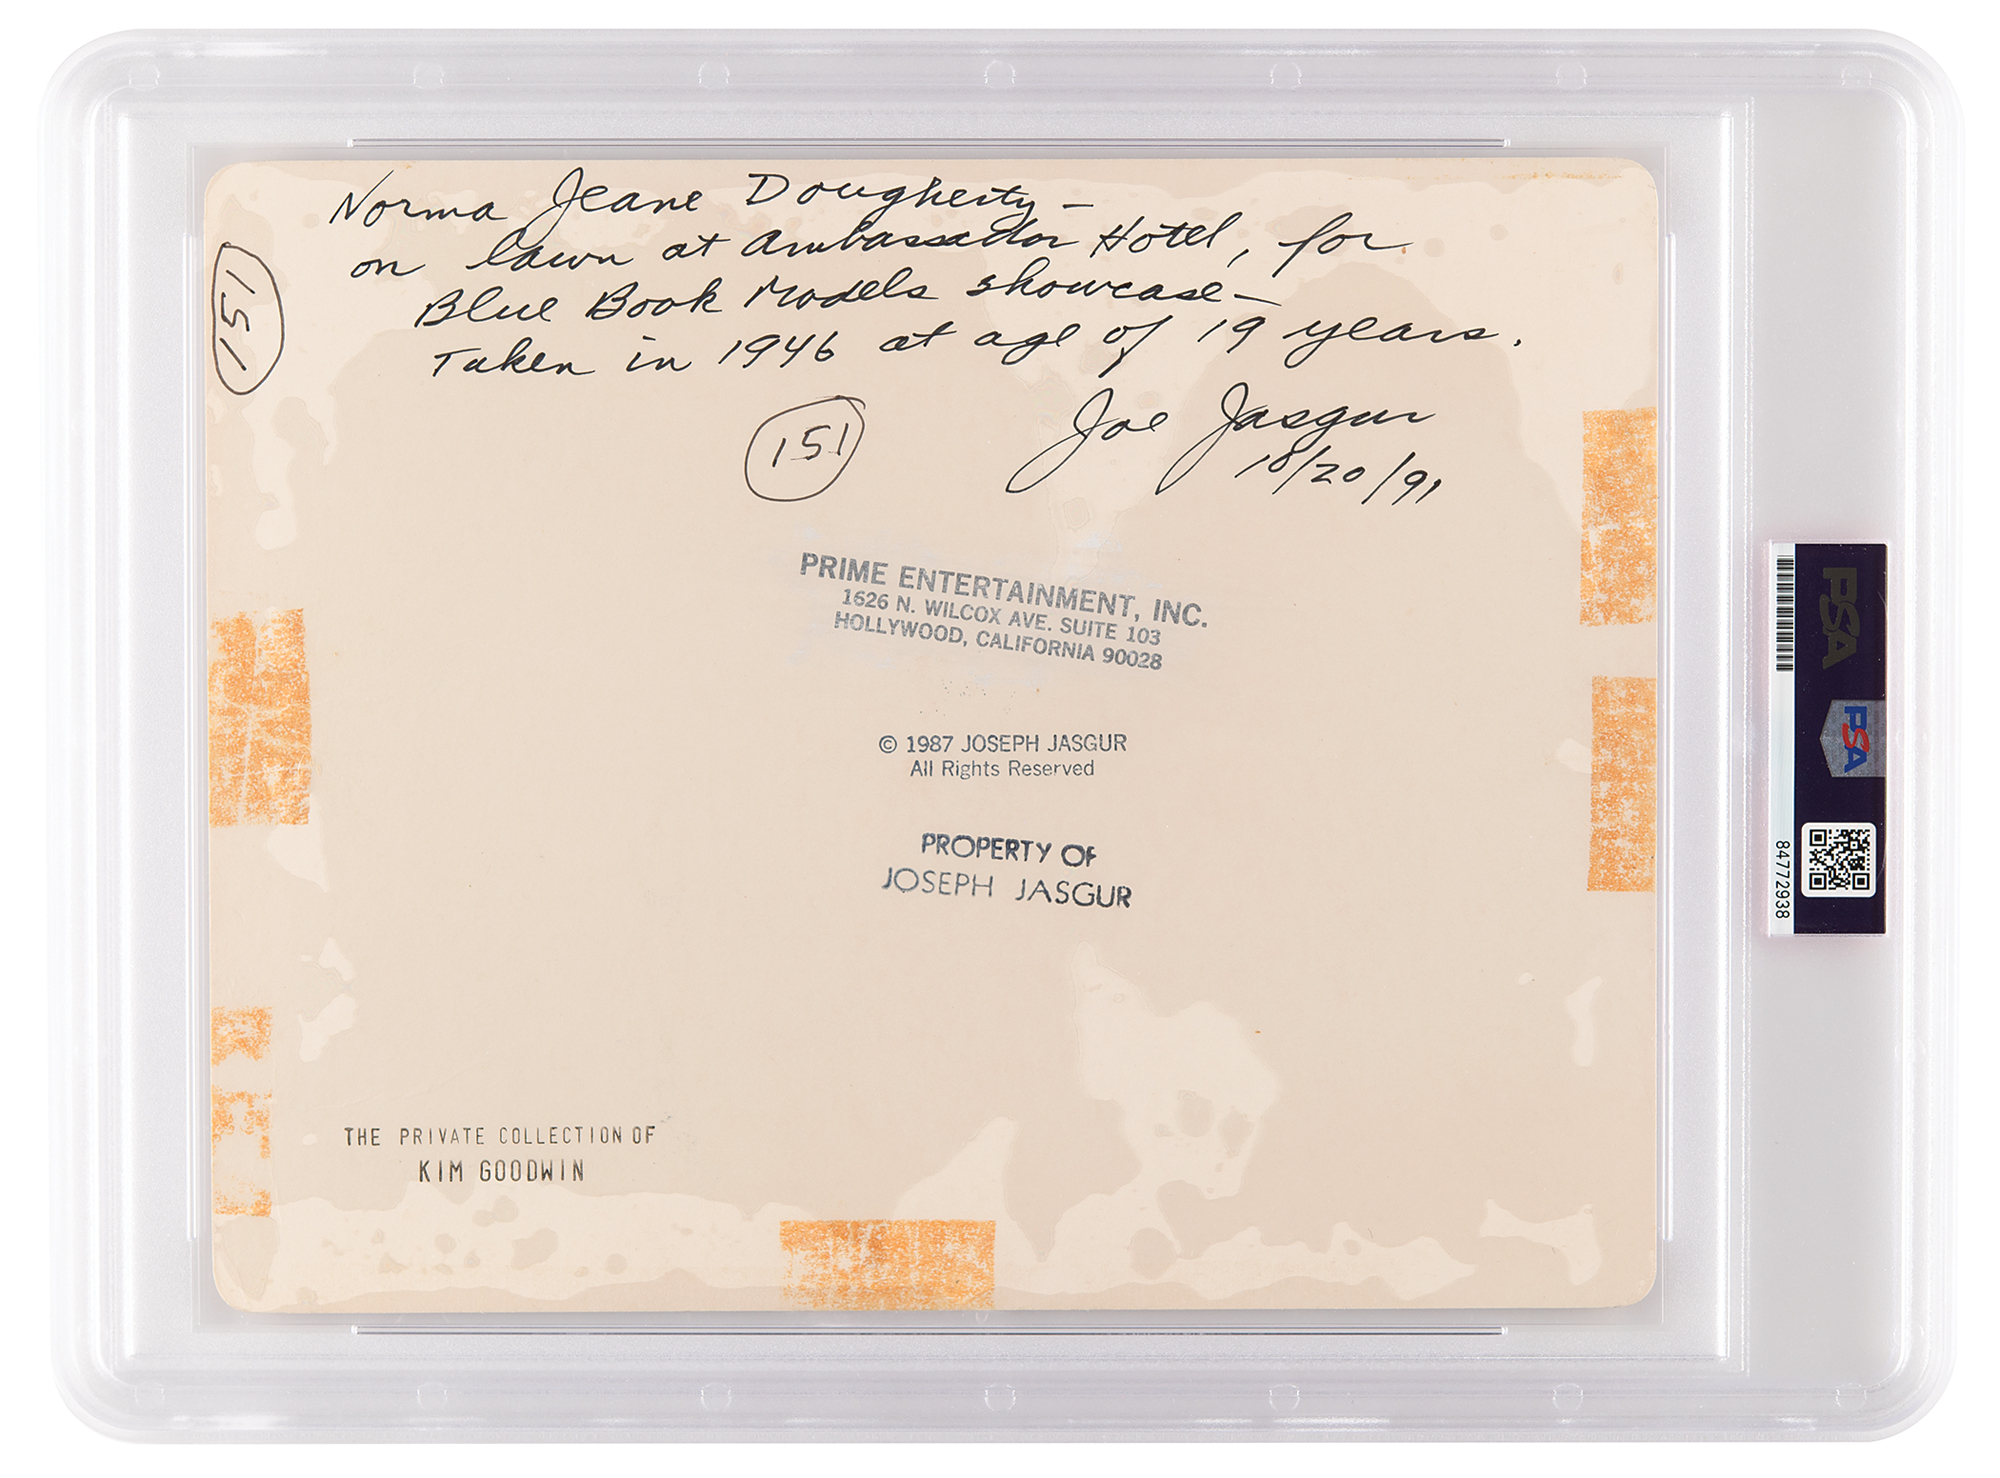 Norma Jeane Dougherty –
on lawn at Ambassador Hotel, for
Blue Book Models showcase –
Taken in 1946 at age of 19 years.
Joe Jasgur
10/20/91
151
151
PRIME ENTERTAINMENT, INC.
1626 N. WILCOX AVE. SUITE 103
HOLLYWOOD, CALIFORNIA 90028
© 1987 JOSEPH JASGUR
All Rights Reserved
PROPERTY OF
JOSEPH JASGUR
THE PRIVATE COLLECTION OF
KIM GOODWIN
PSA
PSA
84772938